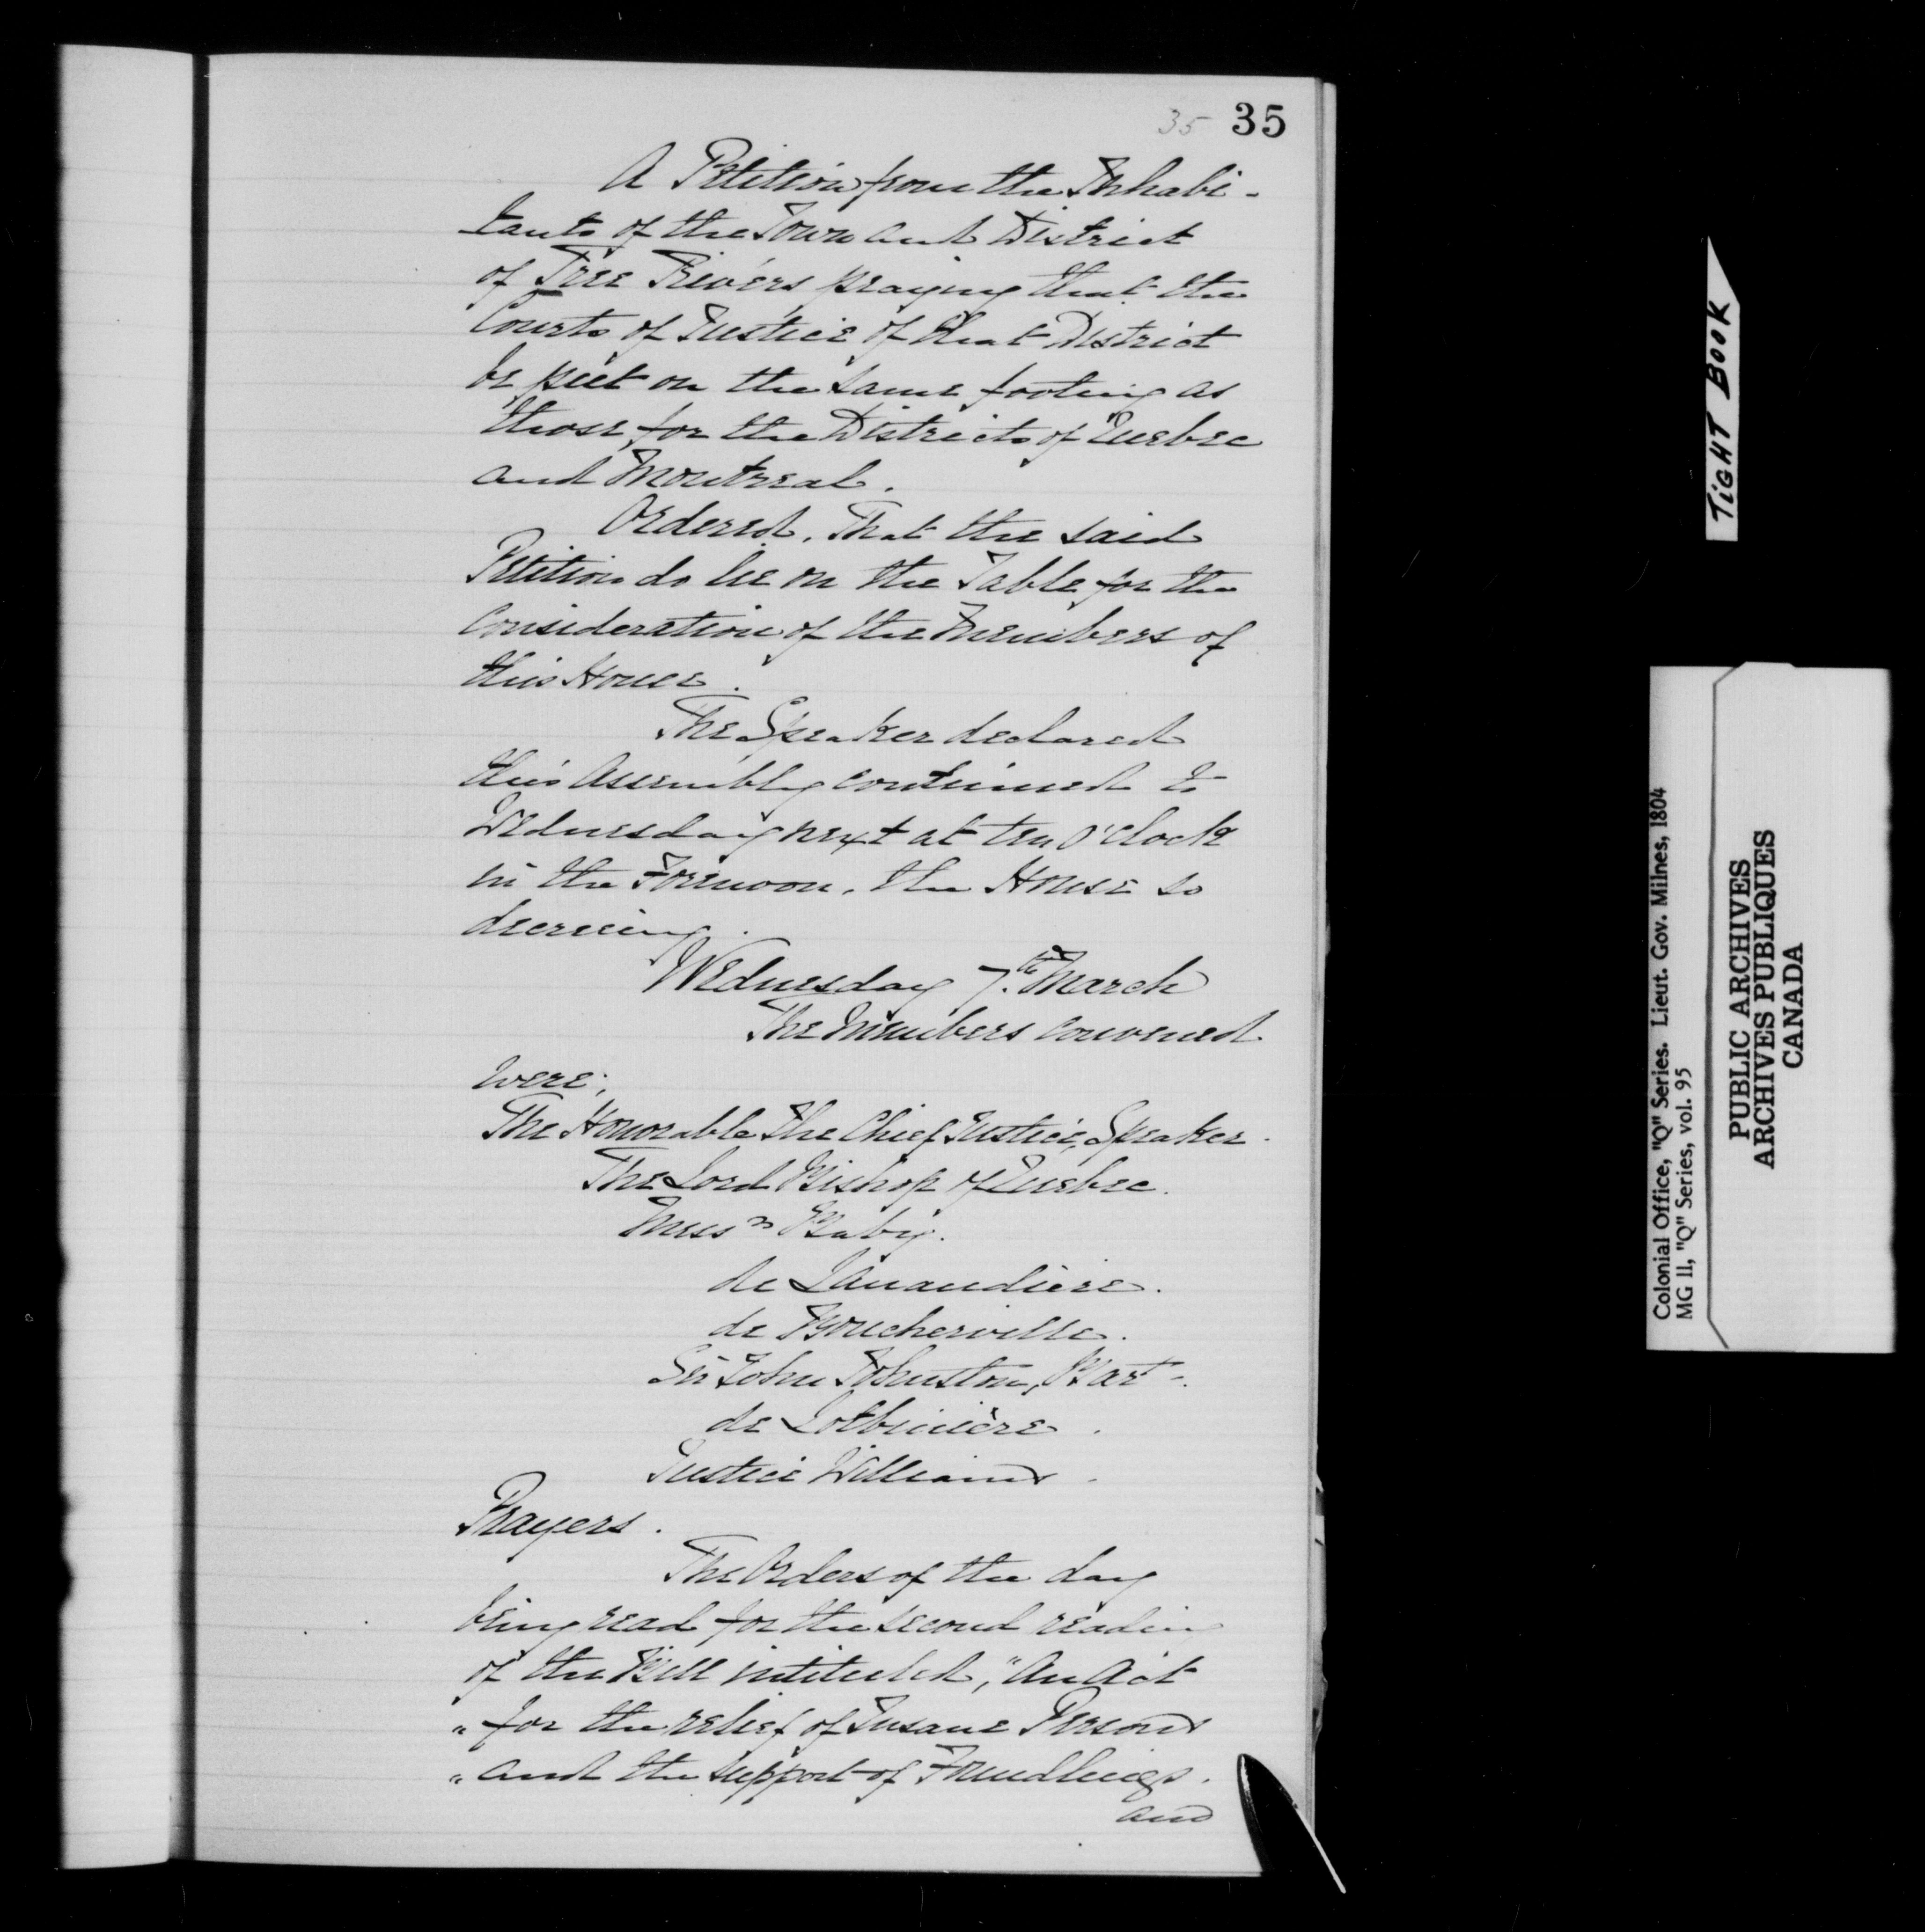 35 35
A Petition from the Inhabi-
tants of the Town and District
of Tree Rivers praying that the
Courts of Justice of that District
be put on the same footing as
those for the Districts of Quebec
and Montreal.
Ordered, That the said
Petition do lie on the Table for the
Consideration of the Members of
this House.
The Speaker declared
this Assembly continued to
Wednesday next at ten o'Clock
in the Forenoon, the House so
decreeing.
Wednesday 7th March
The Members convened
were;
The Honorable The Chief Justice, Speaker.
The Lord Bishop of Quebec.
Messrs Baby.
de Lanaudière.
de Boucherville.
Sir John Johnston, Bart.
de Lotbinière.
Justice Williams.
Prayers.
The Orders of the day
being read for the second reading
of the Bill intituled, "An Act
"for the relief of Insane Persons
"and the support of Foundlings.
and
TIGHT BOOK
Colonial Office, "Q" Series. Lieut. Gov. Milnes, 1804
MG 11, "Q" Series, vol. 95
PUBLIC ARCHIVES
ARCHIVES PUBLIQUES
CANADA